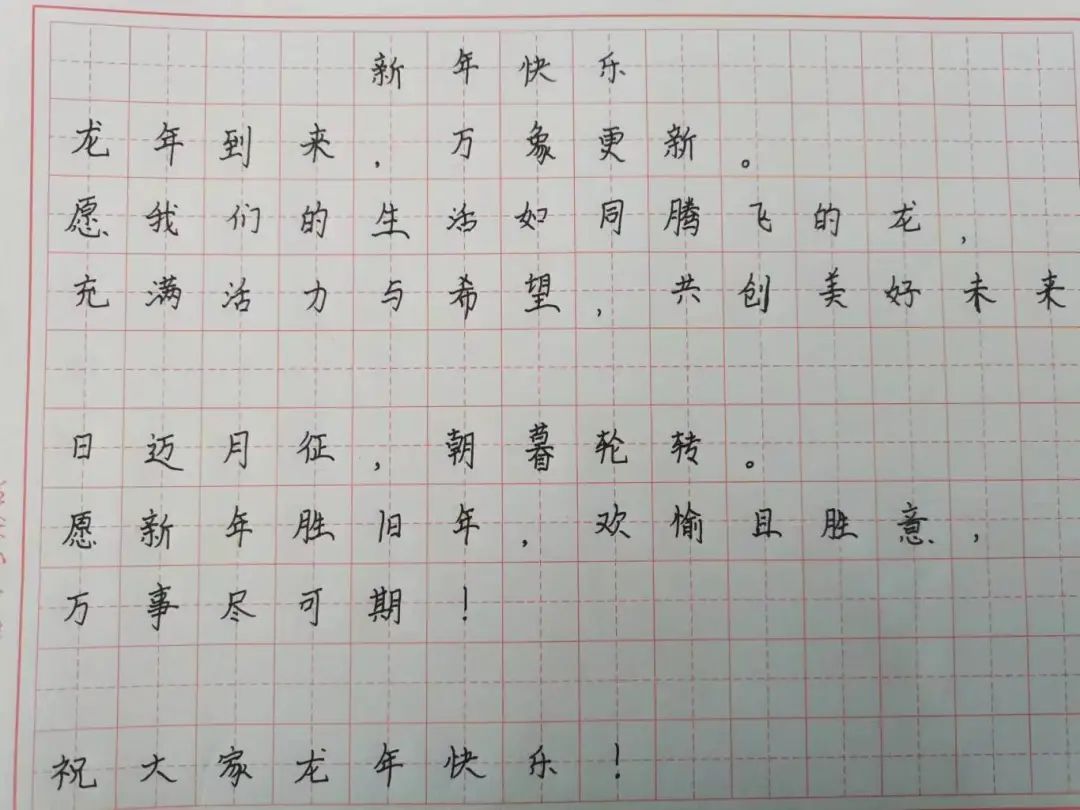 新年快乐
龙年到来，万象更新。
愿我们的生活如同腾飞的龙，
充满活力与希望，共创美好未来
日迈月征，朝暮轮转。
愿新年胜旧年，欢愉且胜意，
万事尽可期！
祝大家龙年快乐！